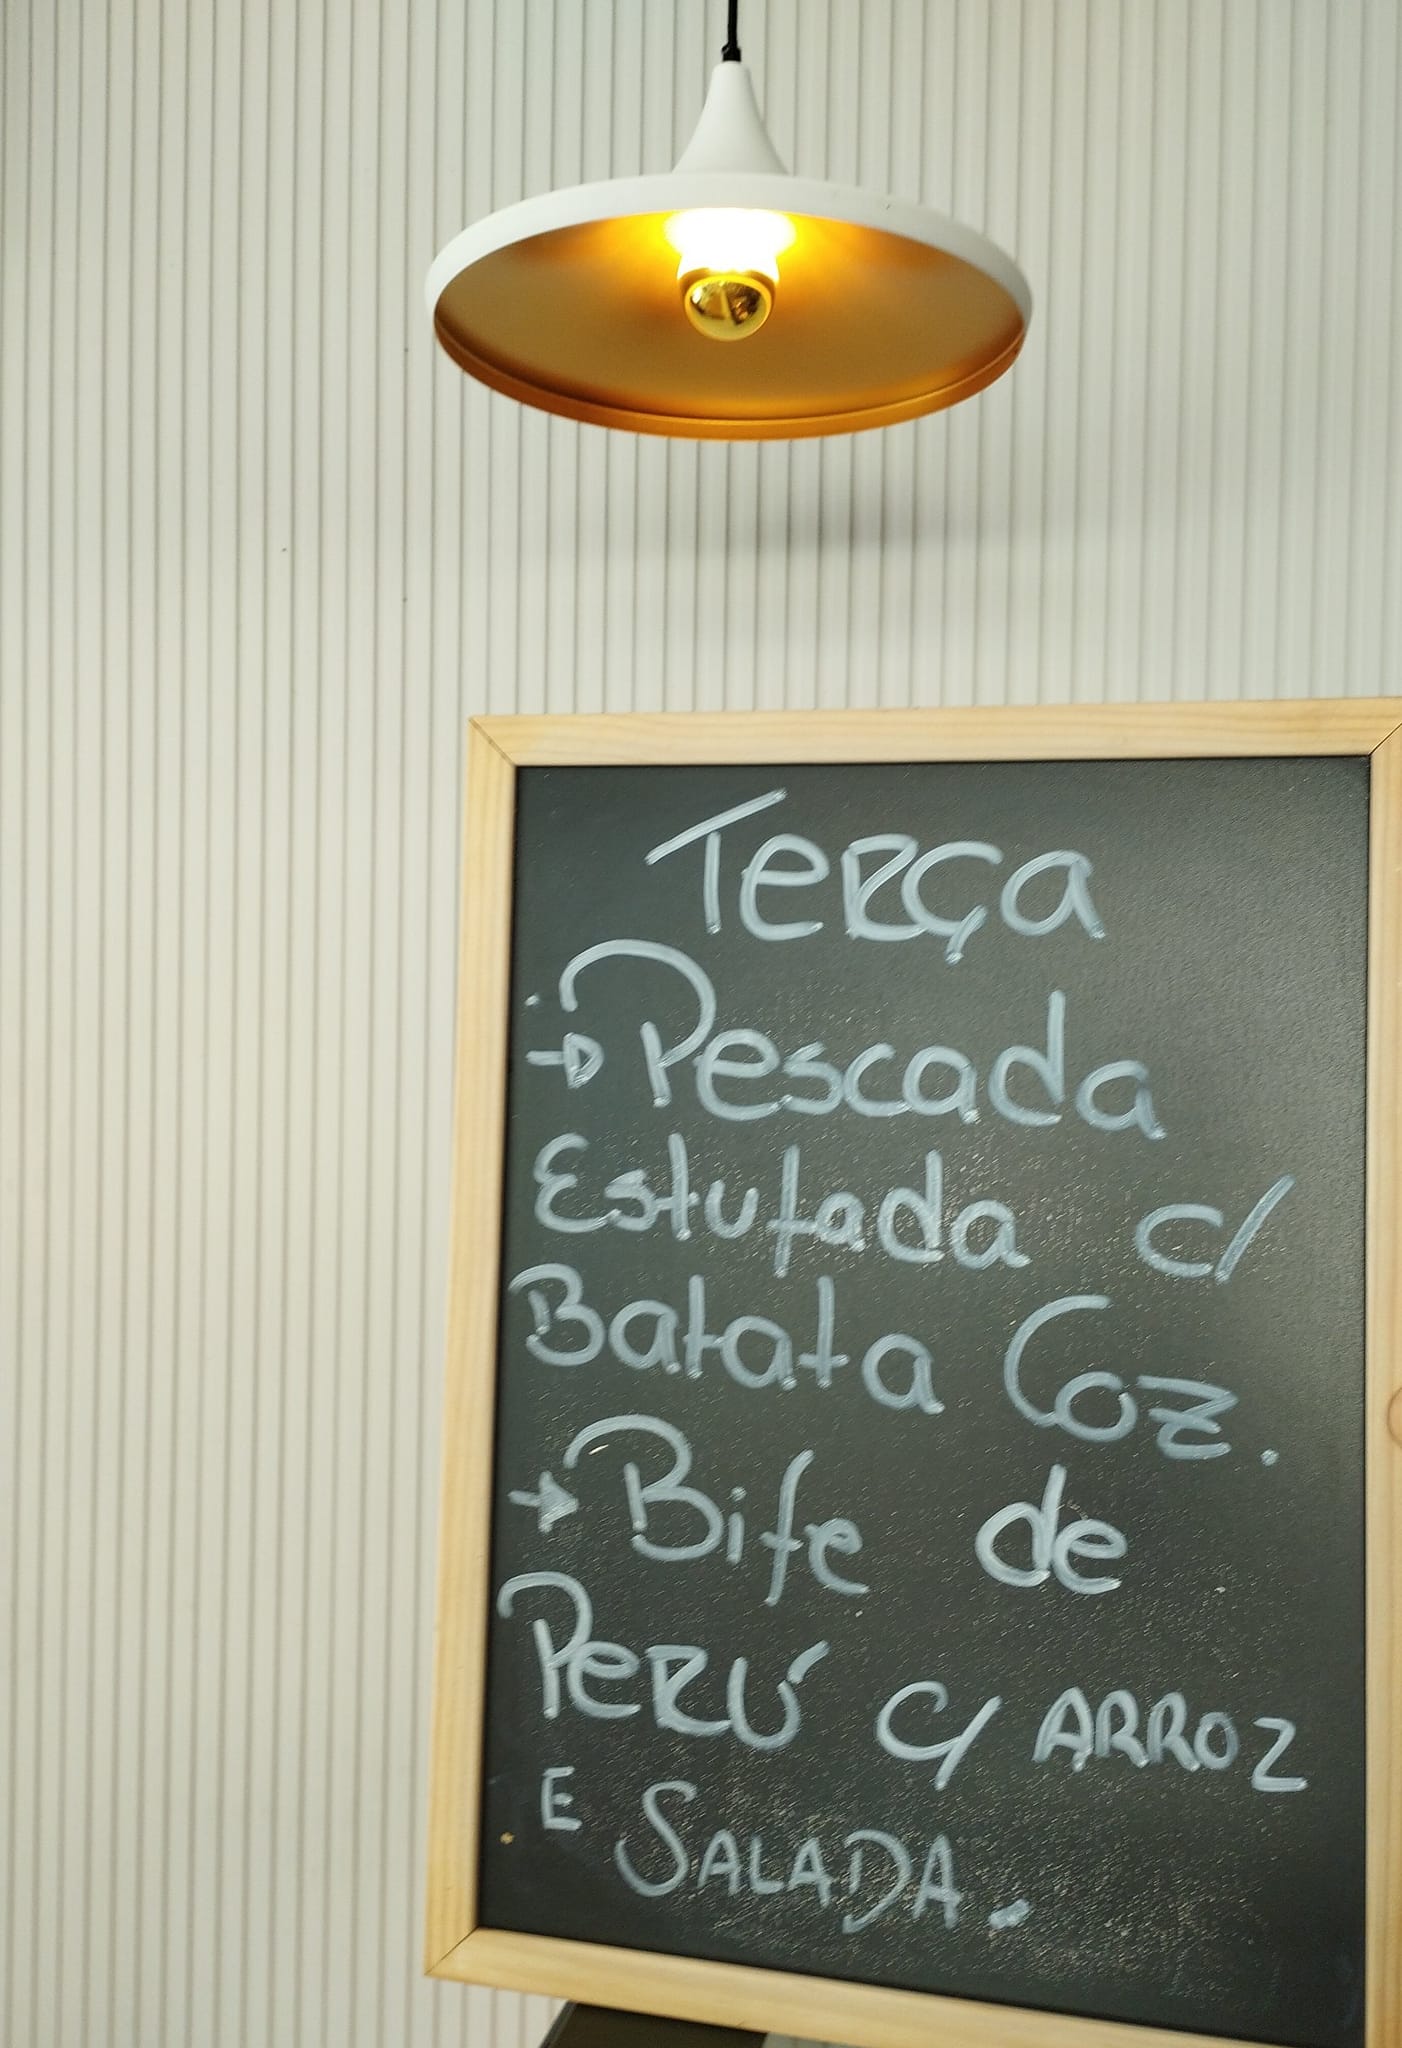 Terça
→ Pescada
Estufada c/
Batata Coz.
→ Bife de
Perú c/ ARROZ
E SALADA.